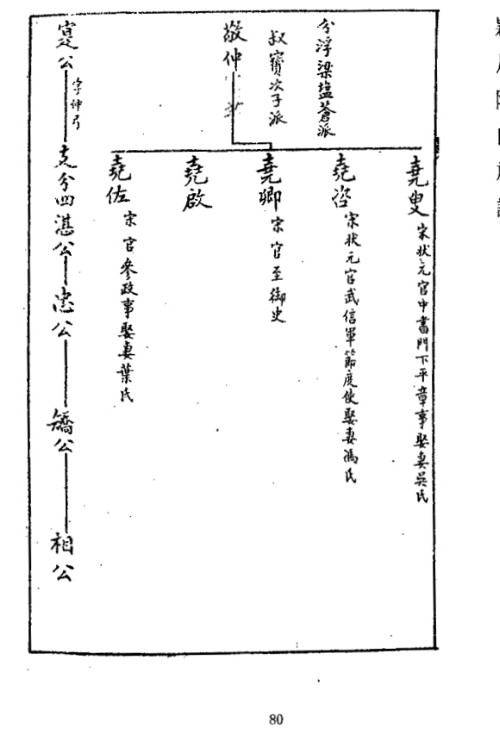 分浮梁塩蒼派
叔寶次子派
敬仲
堯叟
宋状元官中書門下平章事娶妻吳氏
堯咨
宋状元官武信軍節度使娶妻馮氏
堯卿
宋官至御史
堯啟
堯佐
宋官參政事娶妻葉氏
寔公
字仲弓
支分四湛公
忠公
矯公
相公
80